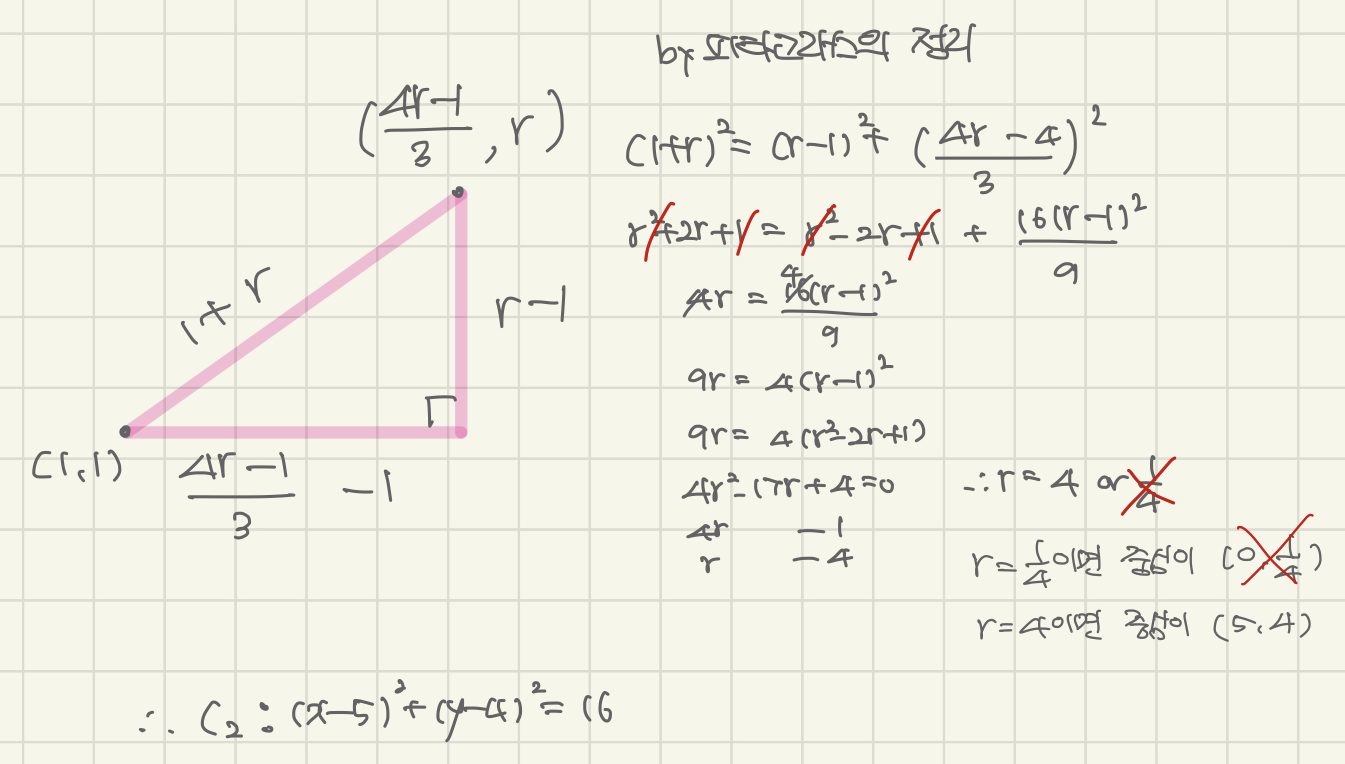 by 피타고라스의 정리
(4r-1/3, r)
(1+r)² = (r-1)² + (4r-4/3)²
r²+2r+1 = r²-2r+1 + 16(r-1)²/9
4r = 16(r-1)²/9
4
1+r
r-1
9r = 4(r-1)²
9r = 4(r²-2r+1)
(1,1)
4r-1/3 -1
4r²-17r+4=0
4r -1
r -4
∴ r=4 or 1/4
r=1/4이면 중심이 (0, 1/4)
r=4이면 중심이 (5,4)
∴ C₂ : (x-5)²+(y-4)²=16